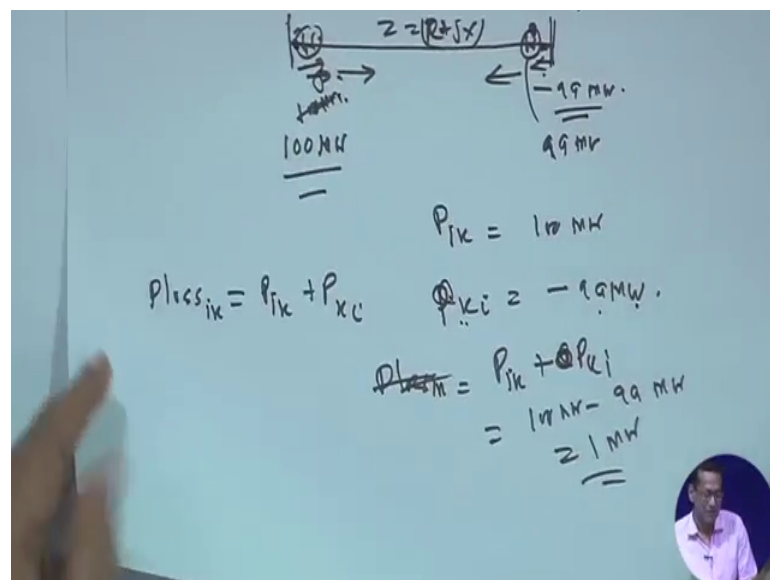 Z = (R+jx)
100 MW
- 99 MW.
99 MW
P_ik = 100 MW
Ploss_ik = P_ik + P_ki
P_ki = - 99 MW.
= P_ik + P_ki
= 100 MW - 99 MW
= 1 MW